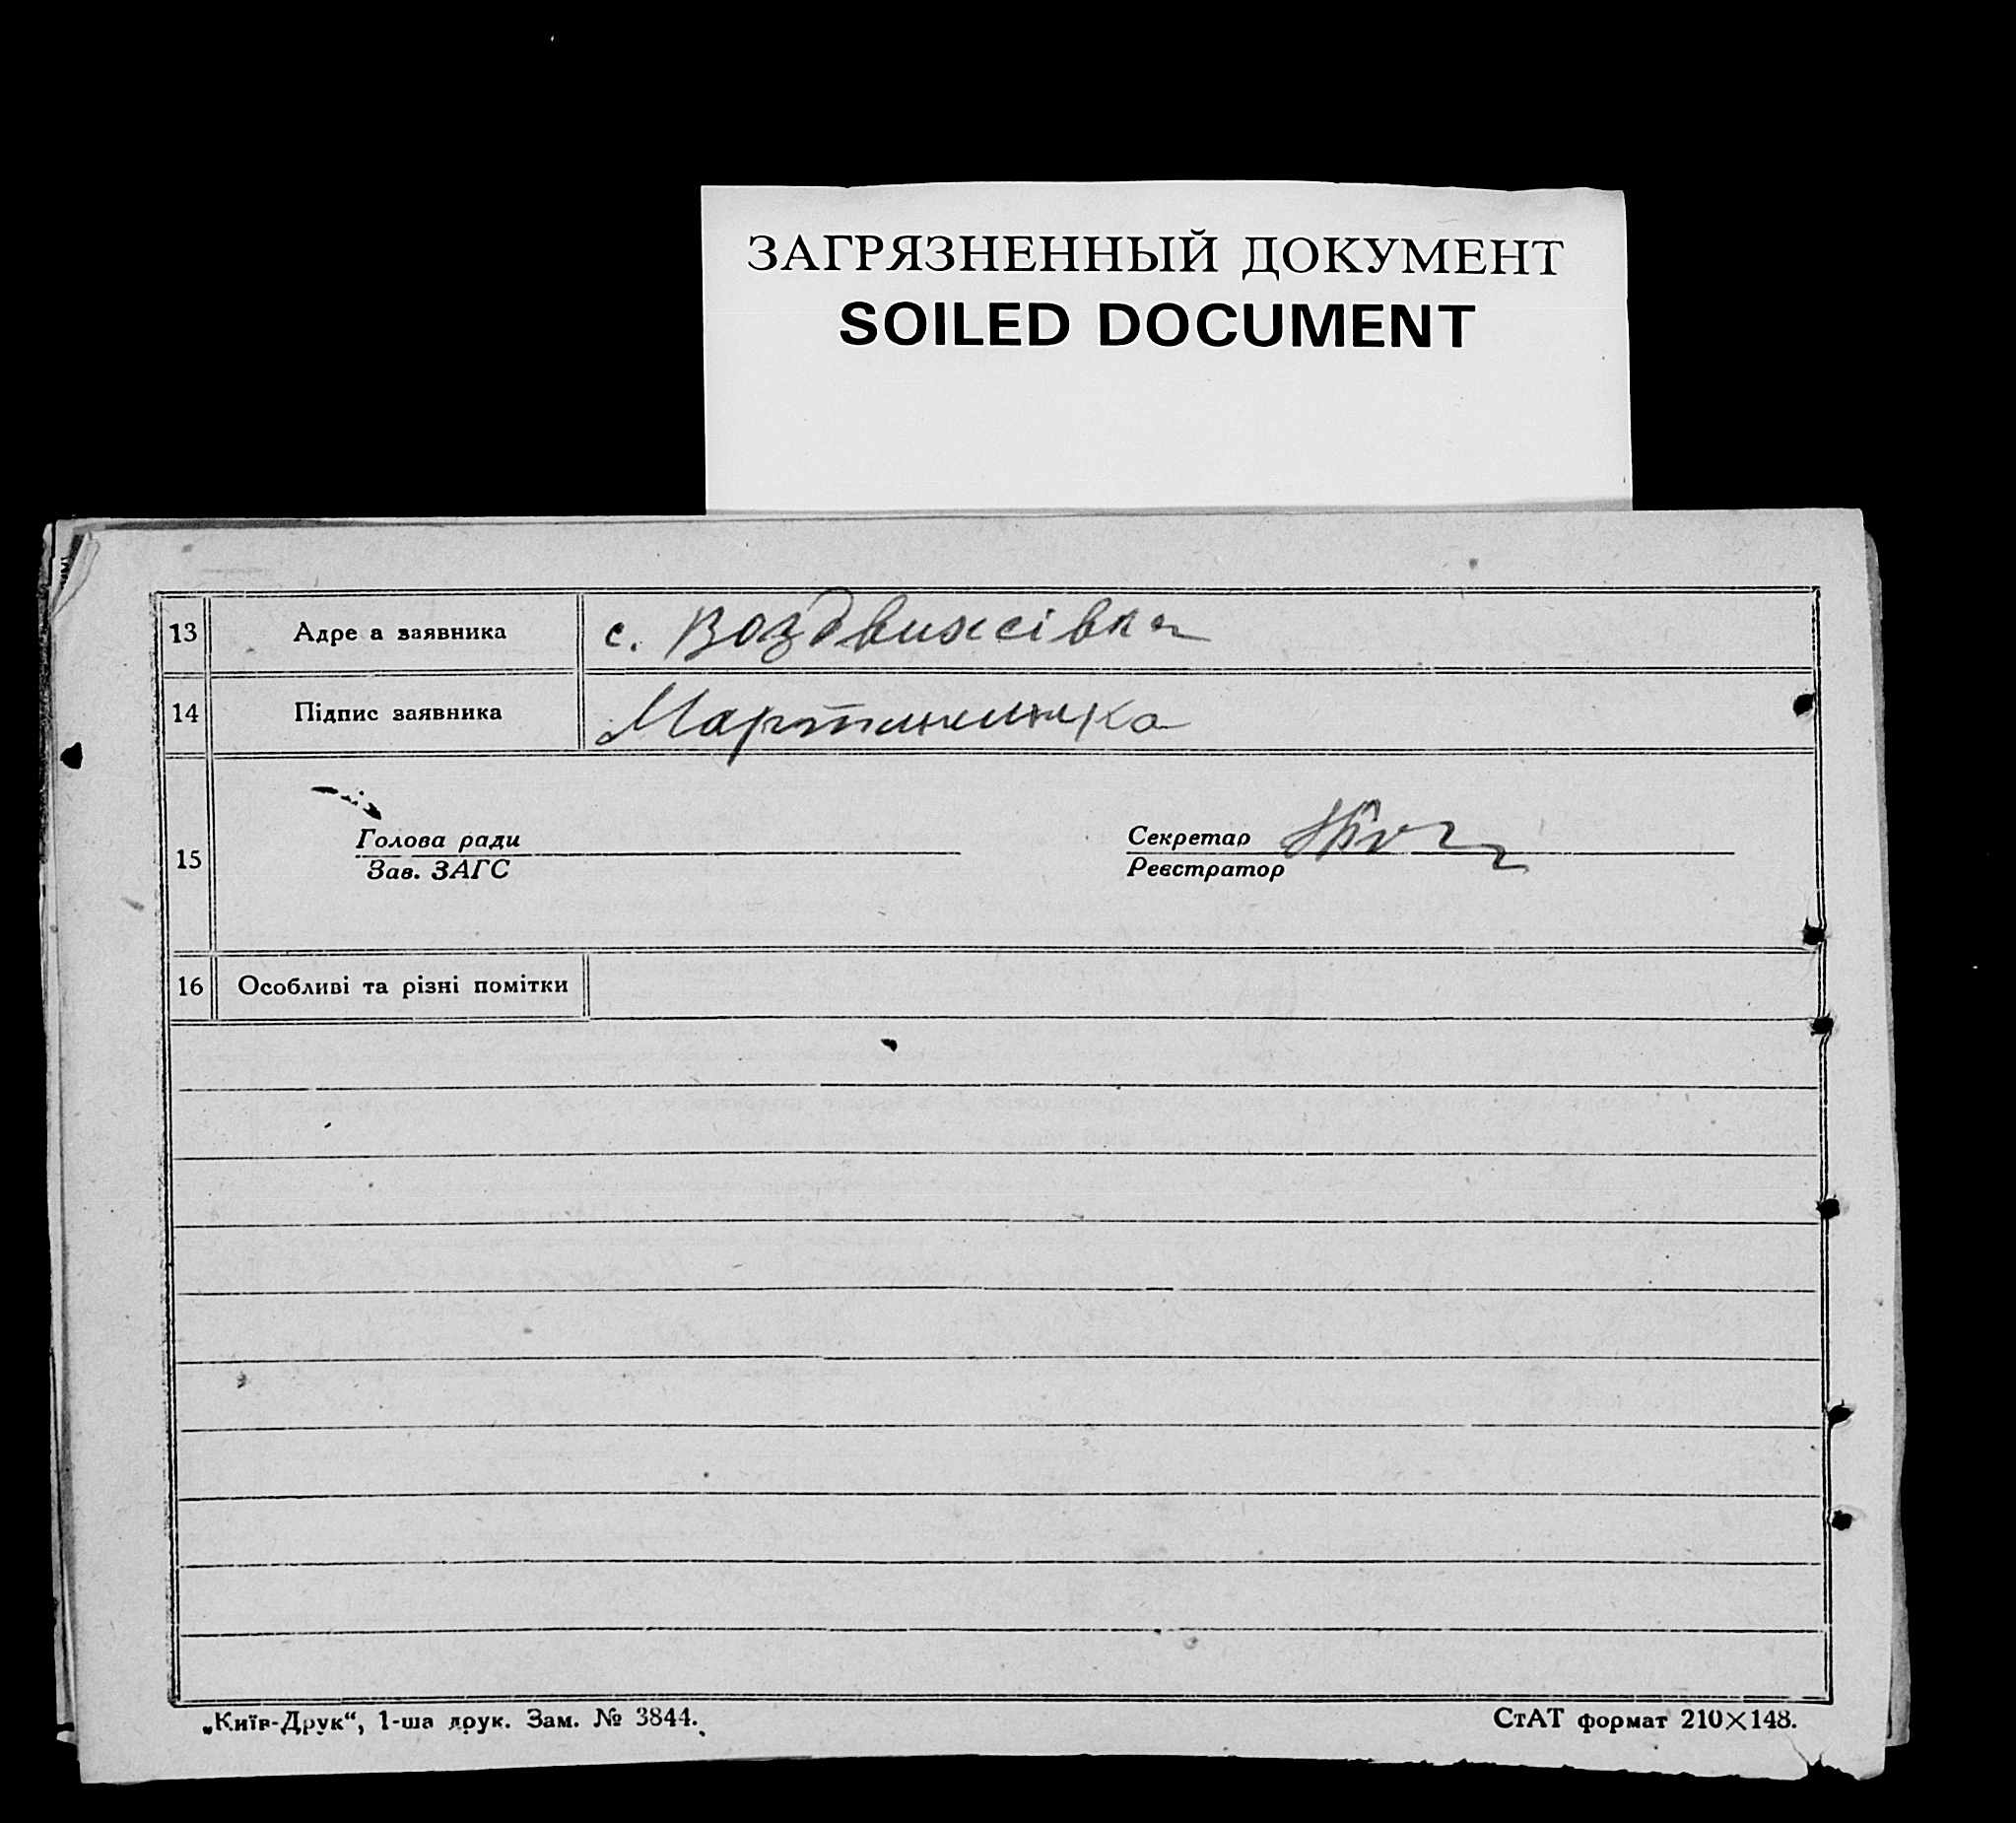 ЗАГРЯЗНЕННЫЙ ДОКУМЕНТ
SOILED DOCUMENT
13 Адре а заявника с. Воздвижсівка
14 Підпис заявника
15
Голова ради
Зав. ЗАГС
Секретар
Реєстратор
16 Особливі та різні помітки
„Київ-Друк“, 1-ша друк. Зам. № 3844.
СтАТ формат 210×148.